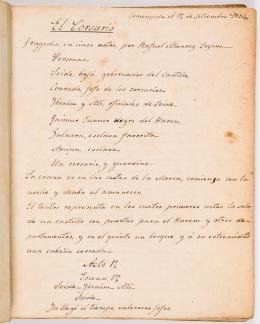 Comenzada el 12 de setiembre 1834
El Corsario
Tragedia en cinco actos, por Rafael Alvarez
Personas.
Seide, bajá, gobernador del Castillo
Conrado, jefe de los corsarios
y Alí, oficiales de Seide
negro del Harem
Gulnara, esclava favorita
esclava
Un corsario, y guardias
La escena es en las costas de la Morea, comienza con la
noche y acaba al amanecer
El teatro representa en los cuatro primeros actos la sala
de un castillo con puertas para el Harem y otros de-
partamentos, y en el quinto un bosque y á su extremidad
una cabaña cerrada.
Acto 1º
Escena 1ª
Seide Alí
Seide
Ya llegó el tiempo, valerosos jefes